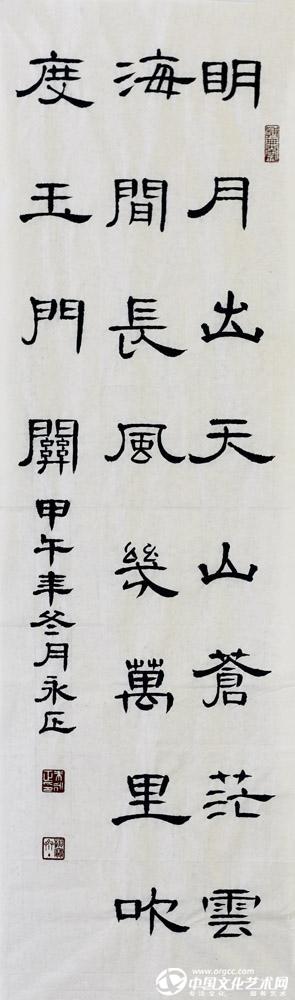 明月出天山蒼茫雲
海間長風幾萬里吹
度玉門關
甲午年冬月永正
中国文化艺术网
www.orgcc.com